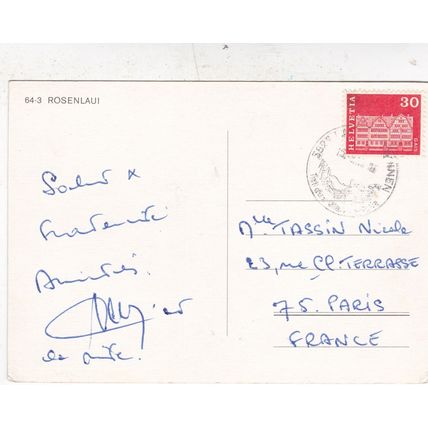 64-3 ROSENLAUI
HELVETIA
30
GAIS
Salut &
Fraternité
Amitiés.
Mlle TASSIN Nicole
23, rue Cl. TERRASSE
75. PARIS
FRANCE